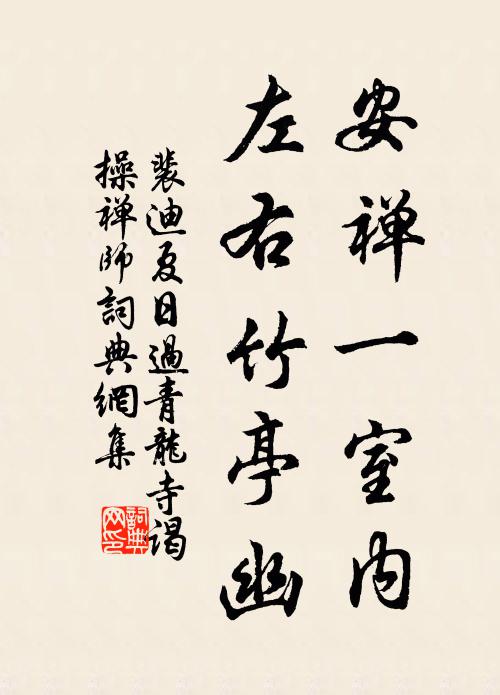 安禅一室内
左右竹亭幽
裴迪夏日過青龍寺谒
操禅師詞典網集
詞典
网印